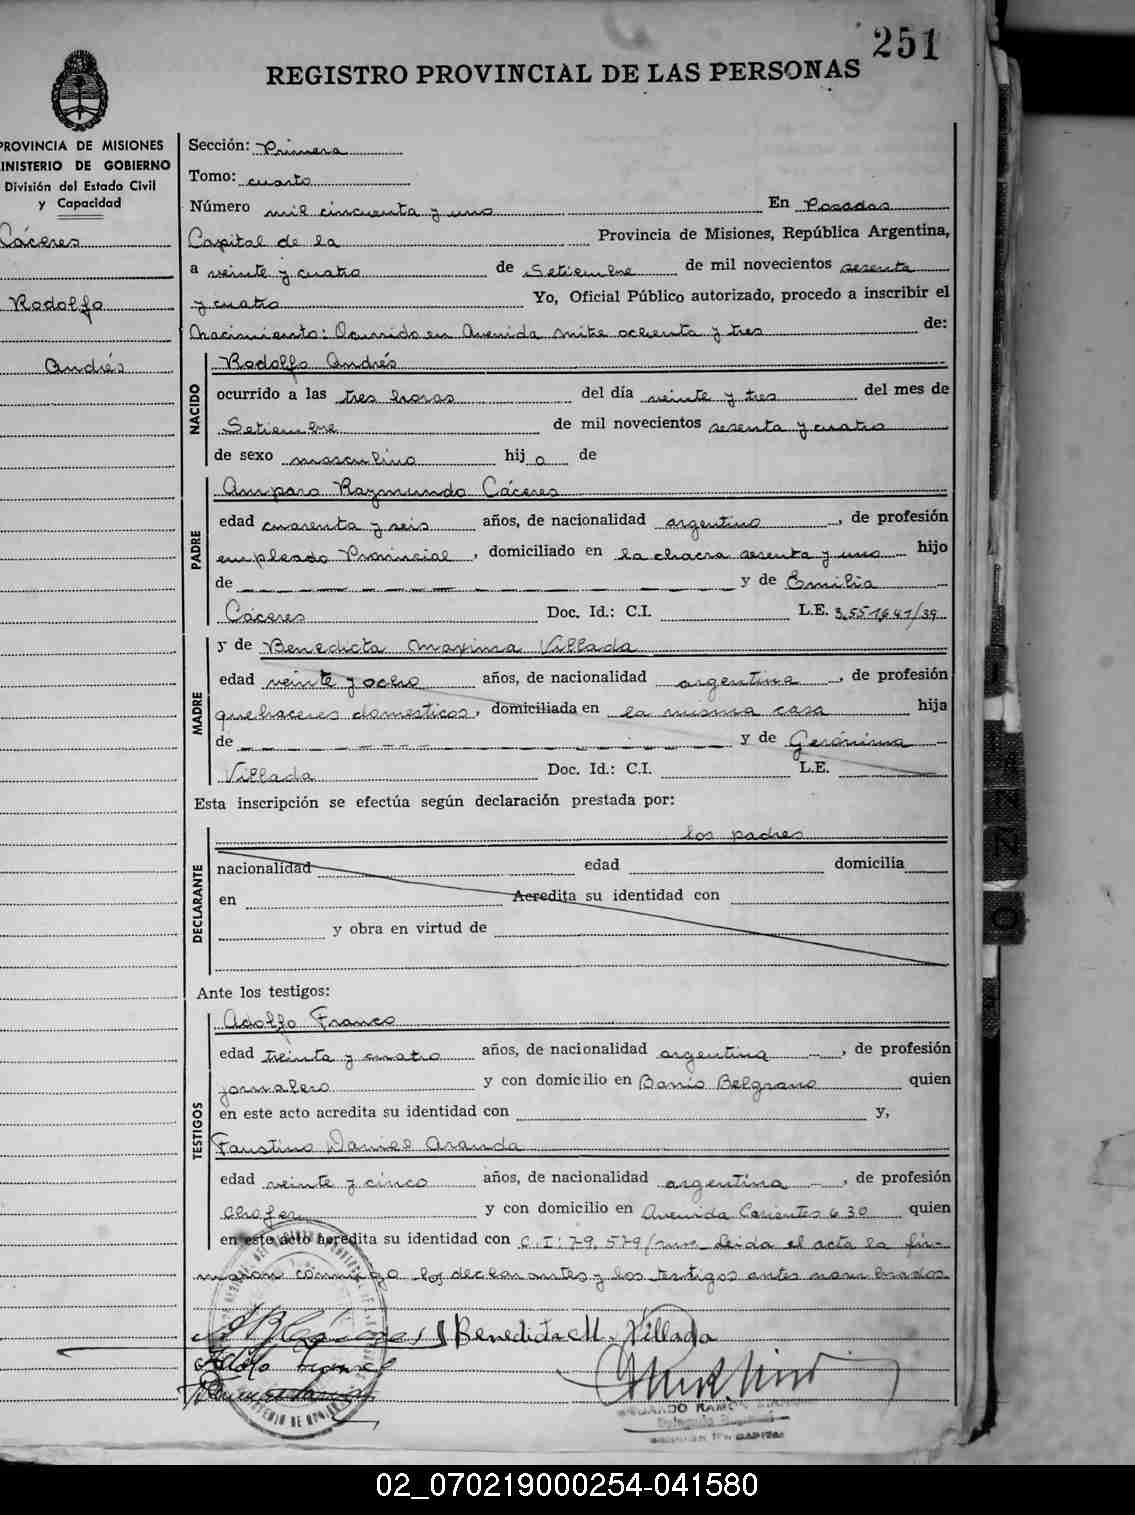 251
REGISTRO PROVINCIAL DE LAS PERSONAS
PROVINCIA DE MISIONES
INISTERIO DE GOBIERNO
División del Estado Civil
y Capacidad
Cáceres
Rodolfo
Andrés
Sección: Primera
Tomo: cuarto
Número mil cincuenta y uno En Posadas
Capital de la Provincia de Misiones, República Argentina,
a veinte y cuatro de Setiembre de mil novecientos sesenta
y cuatro Yo, Oficial Público autorizado, procedo a inscribir el
Nacimiento: Ocurrido en Avenida Mitre ochenta y tres de:
NACIDO
Rodolfo Andrés
ocurrido a las tres horas del día veinte y tres del mes de
Setiembre de mil novecientos sesenta y cuatro
de sexo masculino hijo de
PADRE
Amparo Raymundo Cáceres
edad cuarenta y seis años, de nacionalidad argentino, de profesión
empleado Provincial, domiciliado en la chacra sesenta y uno hijo
de y de Emilia
Cáceres Doc. Id.: C.I. L.E. 3.551.641/39
MADRE
y de Benedicta Maxima Villada
edad veinte y ocho años, de nacionalidad argentina, de profesión
quehaceres domesticos, domiciliada en la misma casa hija
de y de Gerónima
Villada Doc. Id.: C.I. L.E.
Esta inscripción se efectúa según declaración prestada por:
DECLARANTE
los padres
nacionalidad edad domicilia
en Acredita su identidad con
y obra en virtud de
Ante los testigos:
TESTIGOS
Adolfo Franco
edad treinta y cuatro años, de nacionalidad argentina, de profesión
jornalero y con domicilio en Barrio Belgrano quien
en este acto acredita su identidad con y,
Faustino Daniel Aranda
edad veinte y cinco años, de nacionalidad argentina, de profesión
chofer y con domicilio en Avenida Corrientes 630 quien
en este acto acredita su identidad con C.I: 79.579/ Leida el acta la fir-
maron conmigo los declarantes y los testigos antes nombrados
Benedicta M. Villada
Adolfo Franco
RAMON
02_070219000254-041580